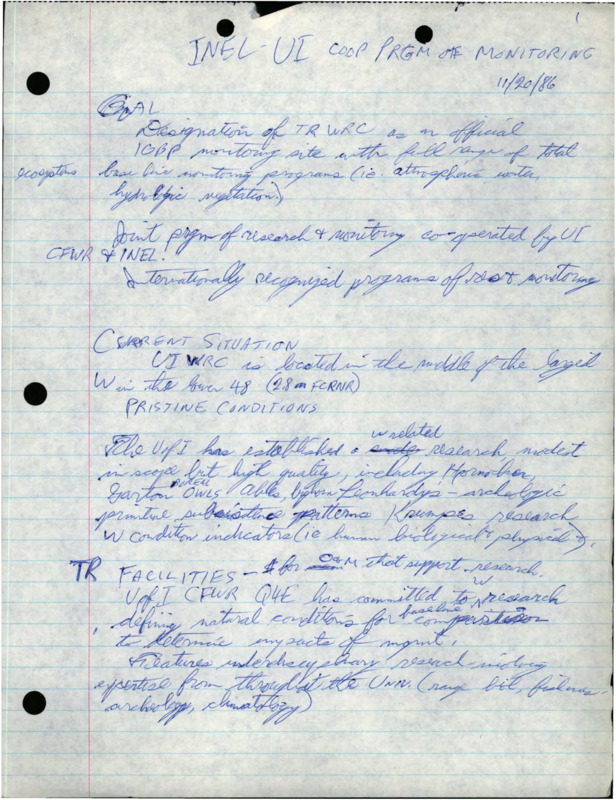 1
INEL-UI COOP PRGM OF MONITORING
11/20/86
GOAL
Designation of TRWRC as an official
IGBP monitoring site with full range of total
ecosystems base line monitoring programs (ie. atmospheric water,
hydrologic vegetation.)
Joint prgm of research & monitoring co-operated by UI
CFWR & INEL.
Internationally recognized programs of res & monitoring
CURRENT SITUATION
UI WRC is located in the middle of the largest
W in the lower 48 (2.8m FCRNR)
PRISTINE CONDITIONS
The UofI has established a W related research, modest
in scope but high quality, including Hornocker,
Garton Owls Ables, Leonhardy's - archeologic
primitive subsistence patterns Krumpe's research
W condition indicators (ie human biological & physical).
TR FACILITIES - $ for O&M that support research.
UofI CFWR Q4E has committed to W research
defining natural conditions for baseline comparison
to determine impacts of mgmt.
Features interdisciplinary research involving
expertise from throughout the Univ. (range biol, fisheries
archeology, climatology)